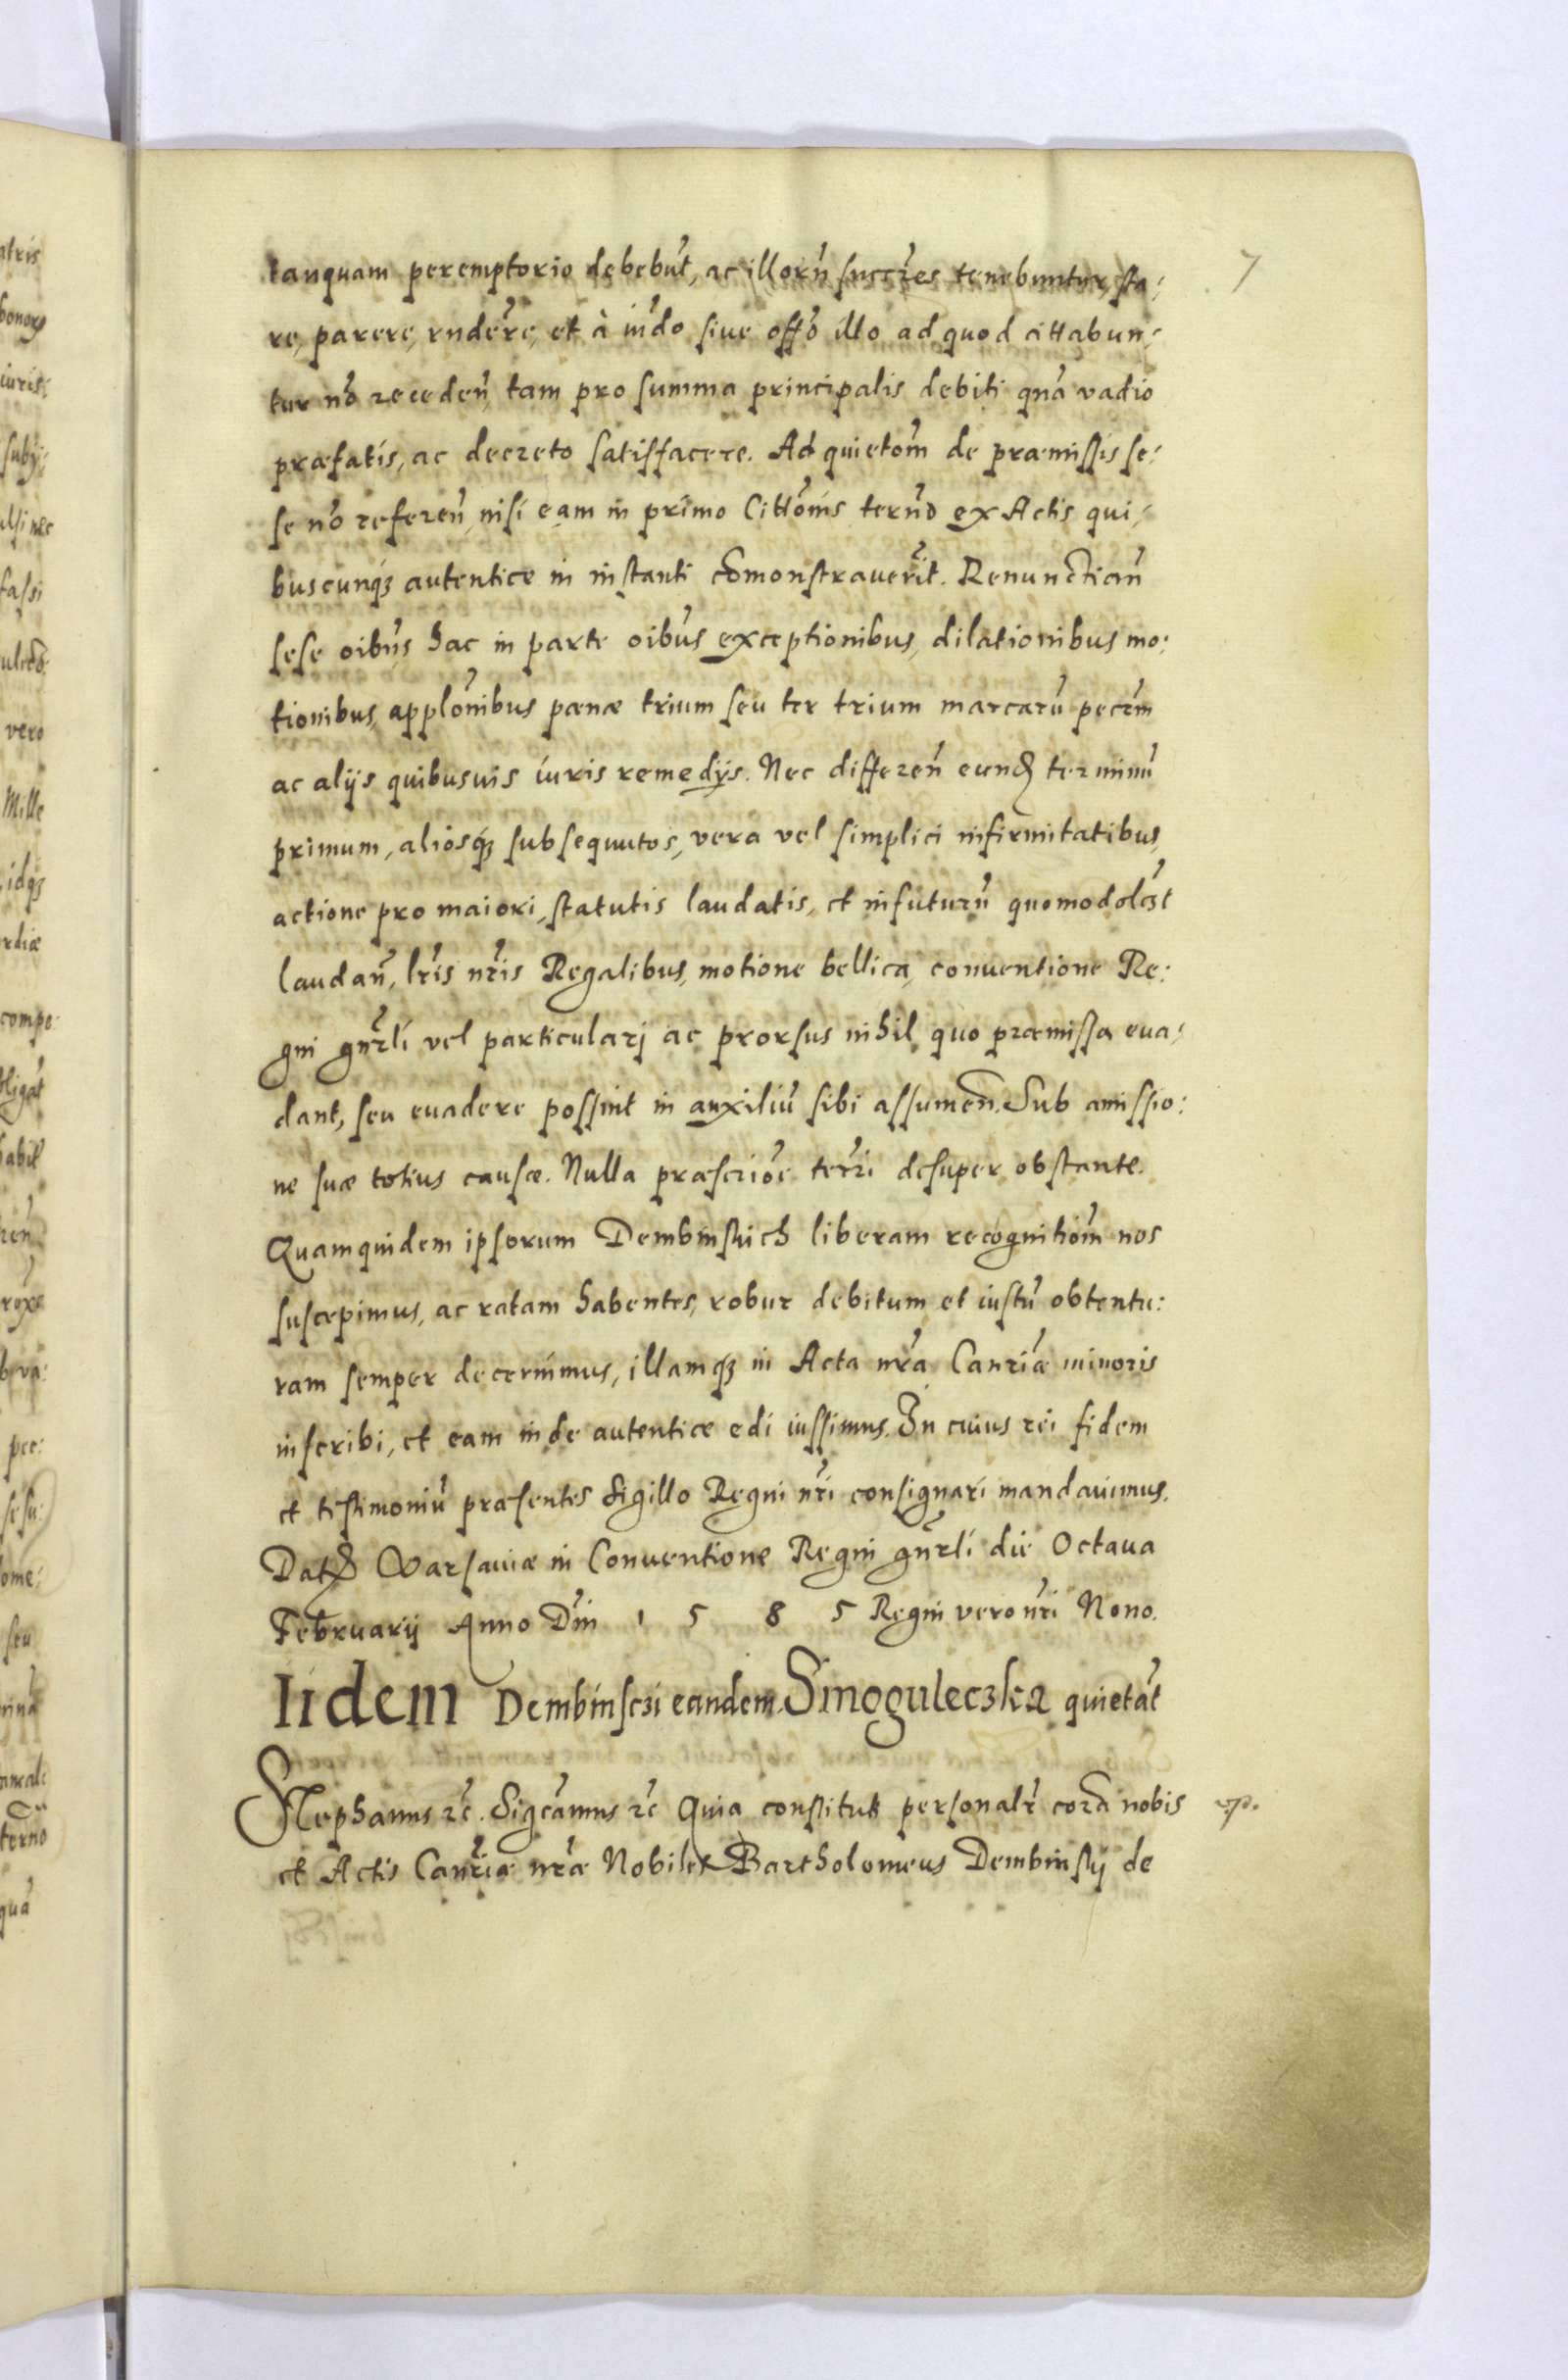 7
tanquam peremptorio debebūt, ac illorū succēs tenebuntur, sta:
re, parere, rnderē, et à iudō sive offō illo ad quod cittabun:
tur nō receden̄, tam pro summa principalis debiti quā vadio
præfatis, ac decreto satisfacere. Ad quietoēm de præmissis se:
se nō referen̄, nisi eam in primo Cittōnis termō ex Actis qui:
buscunqꝫ autentice in instanti cōmonstraverīt. Renunctian̄
sese oibus hac in parte oibus exceptionibus, dilationibus mo:
tionibus, applōnibus pœnæ trium seu ter trium marcarū pecēm
ac alijs quibusuis iuris remedijs. Nec differen̄ eund terminū
primum, aliosqꝫ subsequutos, vera vel simplici infirmitatibus,
actione pro maiori, statutis laudatis, et in futurū quomodolꝫt
laudan̄, lris nris Regalibus, motione bellica, conventione Re:
gni gnrli vel particularj ac prorsus nihil quo præmissa eua:
dant, seu euadere possint in auxiliū sibi assumen̄. Sub amissio:
ne suæ totius causæ. Nulla præscriōe terri desuper obstante.
Quamquidem ipsorum Dembinskich liberam recognitiōm nos
suscepimus, ac ratam habentes, robur debitum et iustū obtentu:
ram semper decernimus, illamqꝫ in Acta nrā Canriæ minoris
inscribi, et eam inde autentice edi iussimus. In cuius rei fidem
et testimoniū præsentes Sigillo Regni nri consignari mandavimus.
Dat Warsaviæ in Conventione Regni gnrli die Octaua
Februarij Anno Dni 1 5 8 5 Regni vero nri Nono.
Iidem Dembinsczi eandem Smoguleczka quietāt
Stephanus rc. Sigcamus rc Quia constituti personalr corā nobis
et Actis Canriæ nræ Nobiles Bartholomeus Dembinskj de